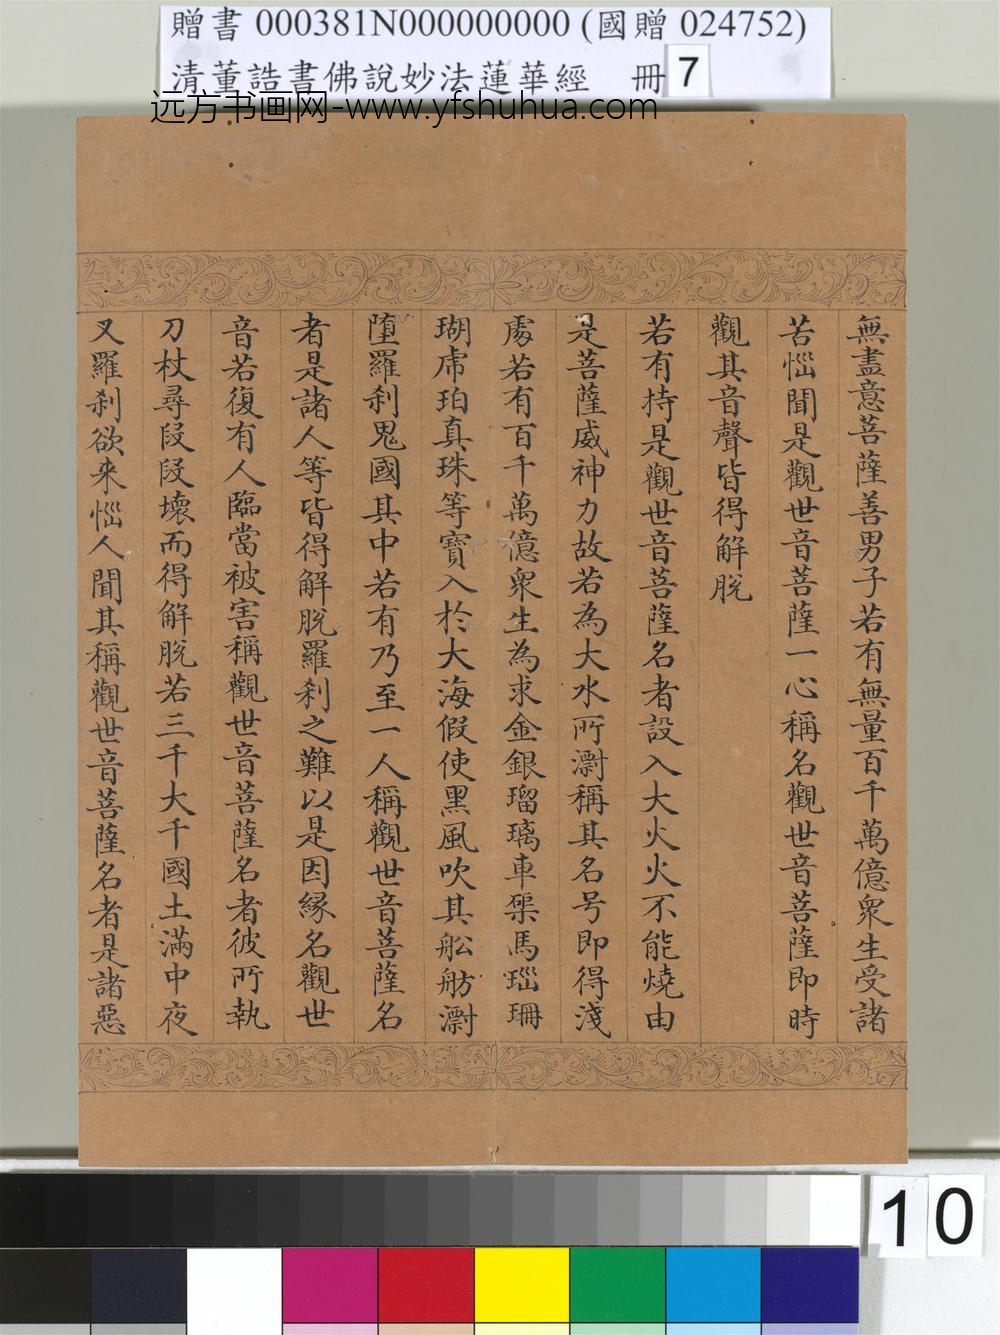 贈書 000381N000000000 (國贈 024752)
清董誥書佛說妙法蓮華經 冊 7
远方书画网-www.yfshuhua.com
無盡意菩薩善男子若有無量百千萬億衆生受諸
苦惱聞是觀世音菩薩一心稱名觀世音菩薩即時
觀其音聲皆得解脫
若有持是觀世音菩薩名者設入大火火不能燒由
是菩薩威神力故若為大水所漂稱其名号即得淺
處若有百千萬億衆生為求金銀瑠璃車磲馬瑙珊
瑚琥珀真珠等寶入於大海假使黑風吹其舩舫漂
墮羅刹鬼國其中若有乃至一人稱觀世音菩薩名
者是諸人等皆得解脫羅刹之難以是因緣名觀世
音若復有人臨當被害稱觀世音菩薩名者彼所執
刀杖尋段段壞而得解脫若三千大千國土滿中夜
叉羅刹欲来惱人聞其稱觀世音菩薩名者是諸惡
10